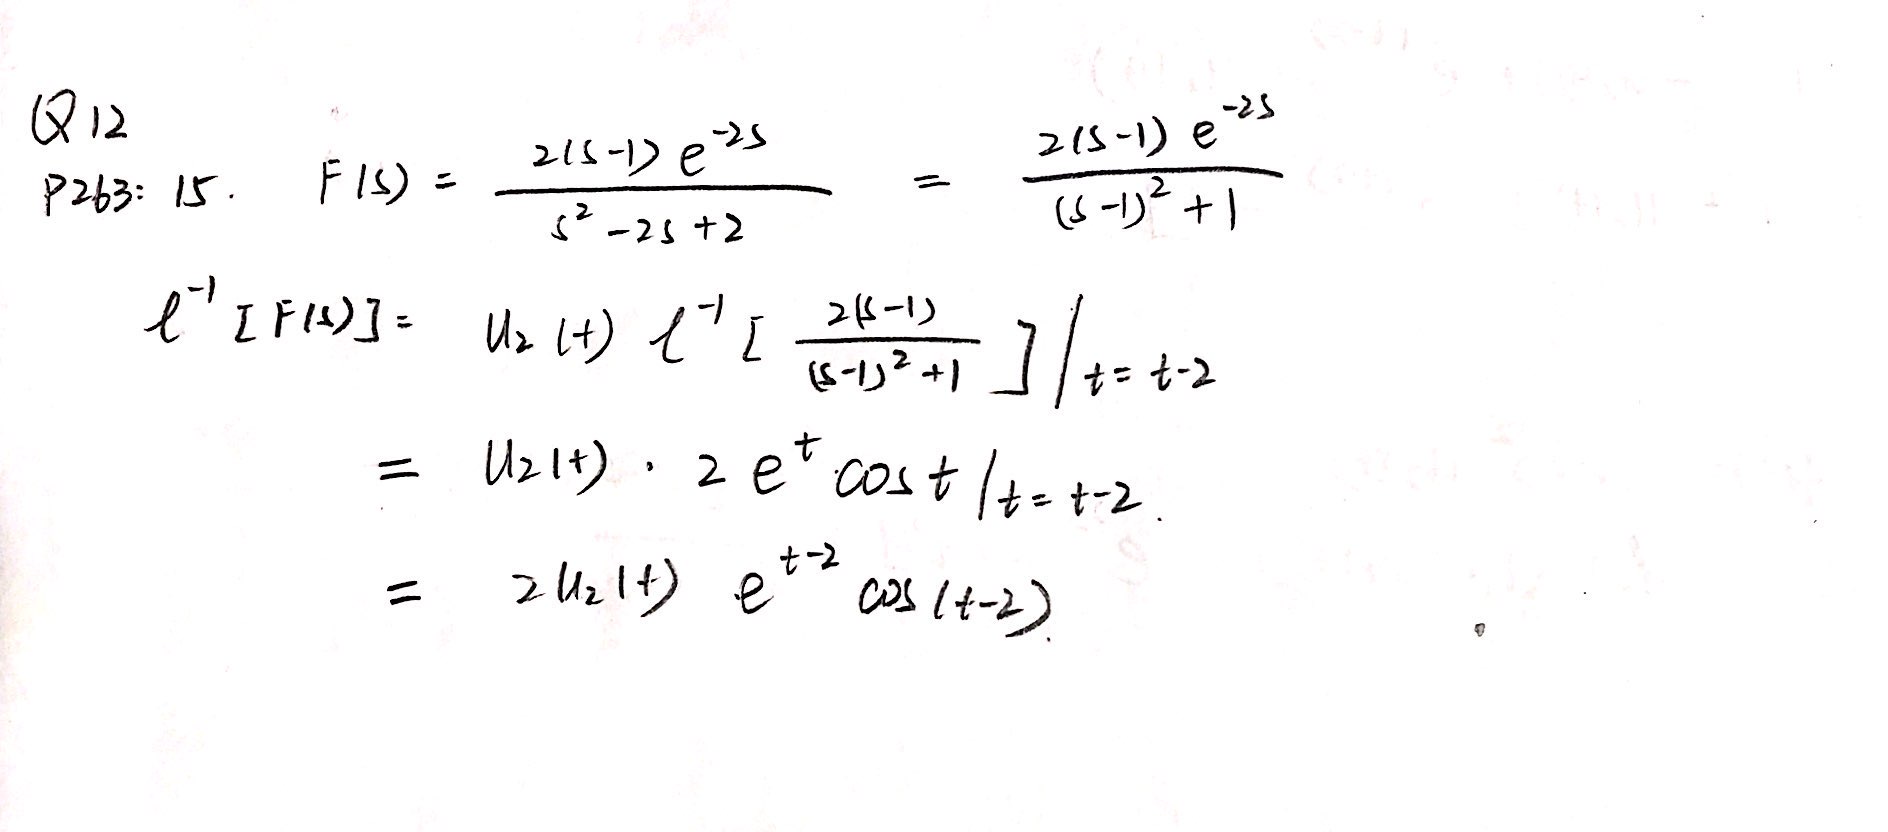 Q12
P263: 15. F(s) = \frac{2(s-1) e^{-2s}}{s^2 - 2s + 2} = \frac{2(s-1) e^{-2s}}{(s-1)^2 + 1}
ℓ^{-1} [F(s)] = u_2(t) ℓ^{-1} [ \frac{2(s-1)}{(s-1)^2 + 1} ] /_{t = t-2}
= u_2(t) · 2 e^t cos t /_{t = t-2}.
= 2 u_2(t) e^{t-2} cos(t-2).